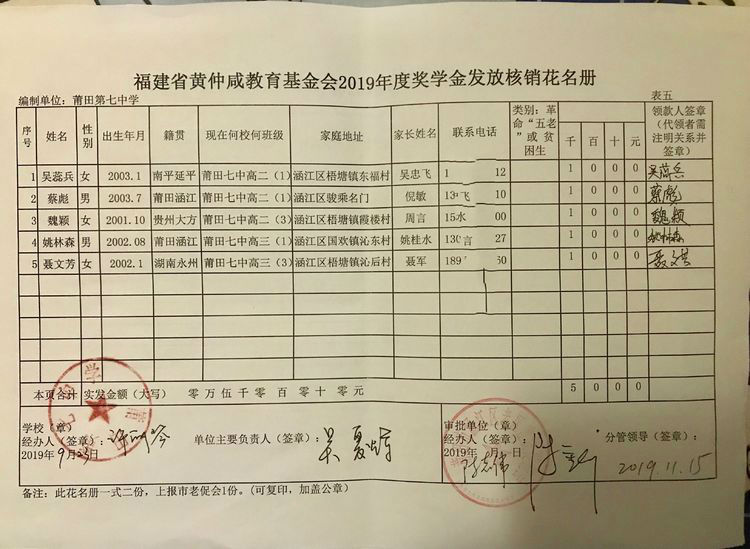 福建省黄仲咸教育基金会2019年度奖学金发放核销花名册
编制单位：莆田第七中学 表五
序号 姓名 性别 出生年月 籍贯 现在何校何班级 家庭地址 家长姓名 联系电话 类别：革命“五老”或贫困生 千 百 十 元 领款人签章（代领者需注明关系并签章）
1 吴蕊兵 女 2003.1 南平延平 莆田七中高二（1） 涵江区梧塘镇东福村 吴忠飞 1 12 1 0 0 0 吴蕊兵
2 蔡彪 男 2003.7 莆田涵江 莆田七中高二（2） 涵江区骏乘名门 倪敏 13 10 1 0 0 0 蔡彪
3 魏颖 女 2001.10 贵州大方 莆田七中高三（2） 涵江区梧塘镇霞楼村 周言 15 00 1 0 0 0 魏颖
4 姚林森 男 2002.08 莆田涵江 莆田七中高三（1） 涵江区国欢镇沁东村 姚桂水 130 27 1 0 0 0 姚林森
5 聂文芳 女 2002.1 湖南永州 莆田七中高三（3） 涵江区梧塘镇沁后村 聂军 189 1 0 0 0 聂文芳
本页合计 实发金额（大写） 零 万 伍 千 零 百 零 十 零 元 5 0 0 0
学校（章） 审批单位（章）
经办人（签章）： 单位主要负责人（签章）： 吴 经办人（签章）： 分管领导（签章）：
2019年9月23日 2019年 月 日 2019.11.15
备注：此花名册一式二份，上报市老促会1份。（可复印，加盖公章）